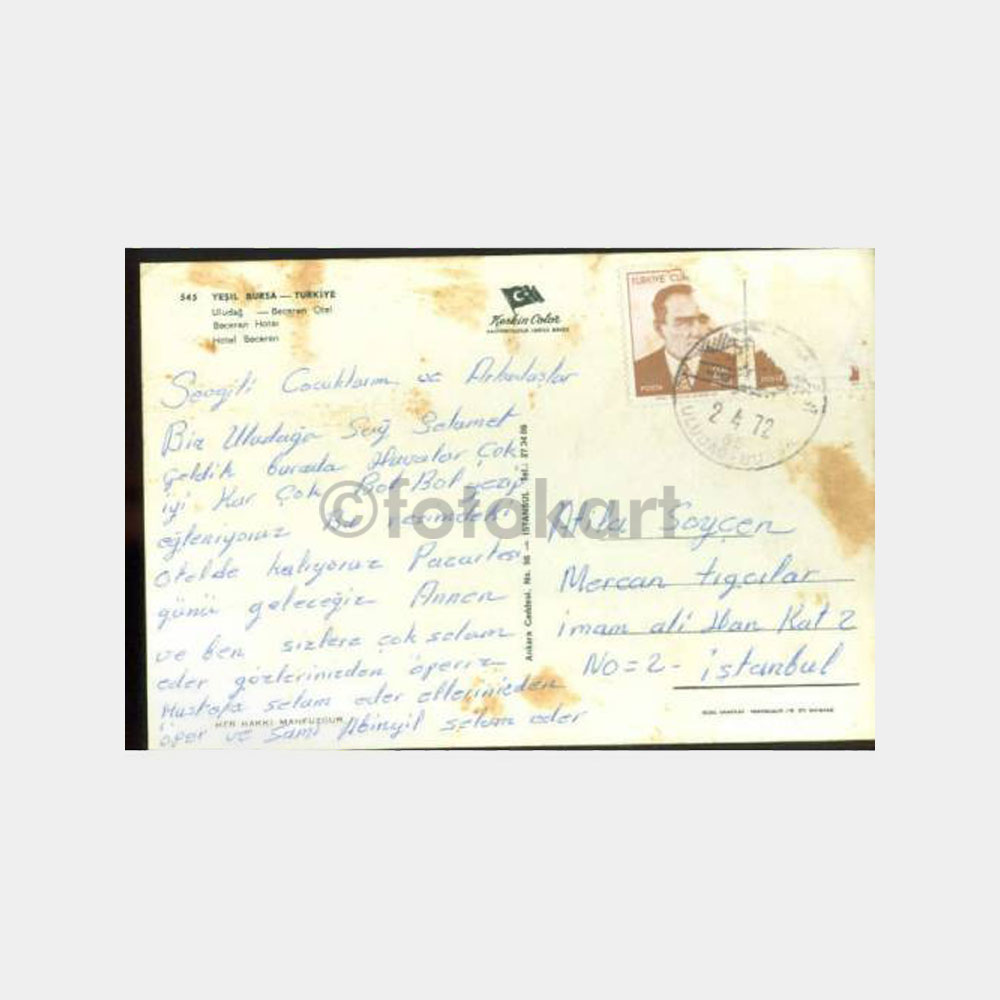 545 YEŞİL BURSA — TÜRKİYE
Uludağ — Beceran Otel
Beceran Hotel
Hotel Beceran
Keskin Color
TÜRKİYE CUM
POSTA
2 4 72
Sevgili Çocuklarım ve Arkadaşlar
Biz Uludağa Sağ Selamet
geldik burada Havalar Çok
iyi Kar Çok Bol Bol gezip
eğleniyoruz Bu resimdeki
otelde kalıyoruz Pazartesi
günü geleceğiz Annen
ve ben sizlere çok selam
eder gözlerinizden öperiz
Mustafa selam eder ellerinizden
öper ve Sami Abinyil selam eder
HER HAKKI MAHFUZDUR
Ankara Caddesi, No. 98 — İSTANBUL Tel.:
Atila Soyçen
Mercan tığcılar
imam ali Han Kat 2
No=2- istanbul
©fotokart